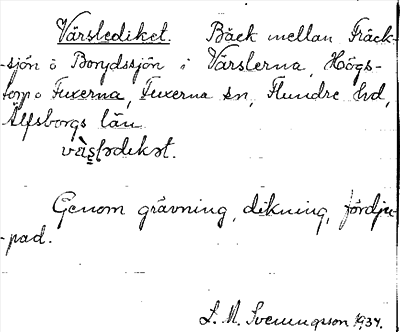 Värslediket. Bäck mellan Fräck-
-sjön o Bondssjön i Värslerna, Högs-
torp o Fuxerna, Fuxerna sn, Flundre hd,
Älfsborgs län
Genom grävning, dikning, fördju-
-pad.
S. M. Svenungsson 1934.